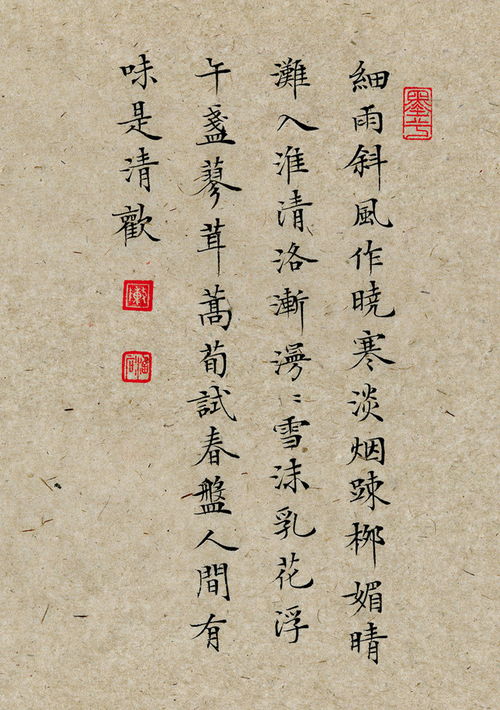 細雨斜風作暁寒淡烟疎柳媚晴
灘入淮清洛漸漫〻雪沫乳花浮
午盞蓼茸蒿荀試春盤人間有
味是清歡